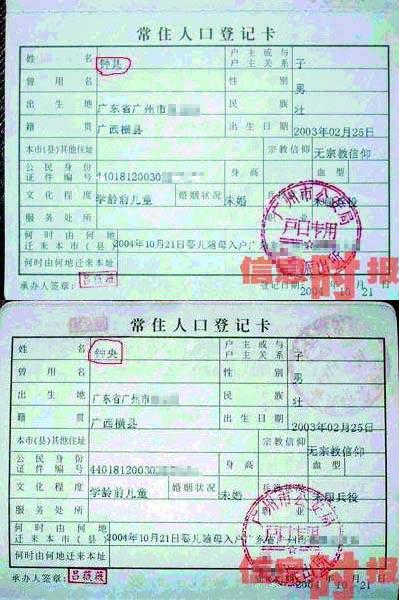 常住人口登记卡
姓 名 钟共 户主或与户主关系 子
曾用名 性别 男
出生地 广东省广州市 民族 壮
籍贯 广西横县 出生日期 2003年02月25日
本市(县)其他住址 宗教信仰 无宗教信仰
公民身份证件编号 44018120030 身高 血型
文化程度 学龄前儿童 婚姻状况 未婚
服务处所
何时由何地迁来本市(县) 2004年10月21日婴儿随母入户广东
何时由何地迁来本址
承办人签章: 吕薇薇 登记日期: 2004 10 21
广州市公安局
户口专用
派出所
信息时报
常住人口登记卡
姓 名 钟央 户主或与户主关系 子
曾用名 性别 男
出生地 广东省广州市 民族 壮
籍贯 广西横县 出生日期 2003年02月25日
本市(县)其他住址 宗教信仰 无宗教信仰
公民身份证件编号 44018120030 身高 血型
文化程度 学龄前儿童 婚姻状况 未婚 兵役状况 未服兵役
服务处所
何时由何地迁来本市(县) 2004年10月21日婴儿随母入户广东省广州市
何时由何地迁来本址
承办人签章: 吕薇薇 2004 10 21
广州市公安局
户口专用
信息时报